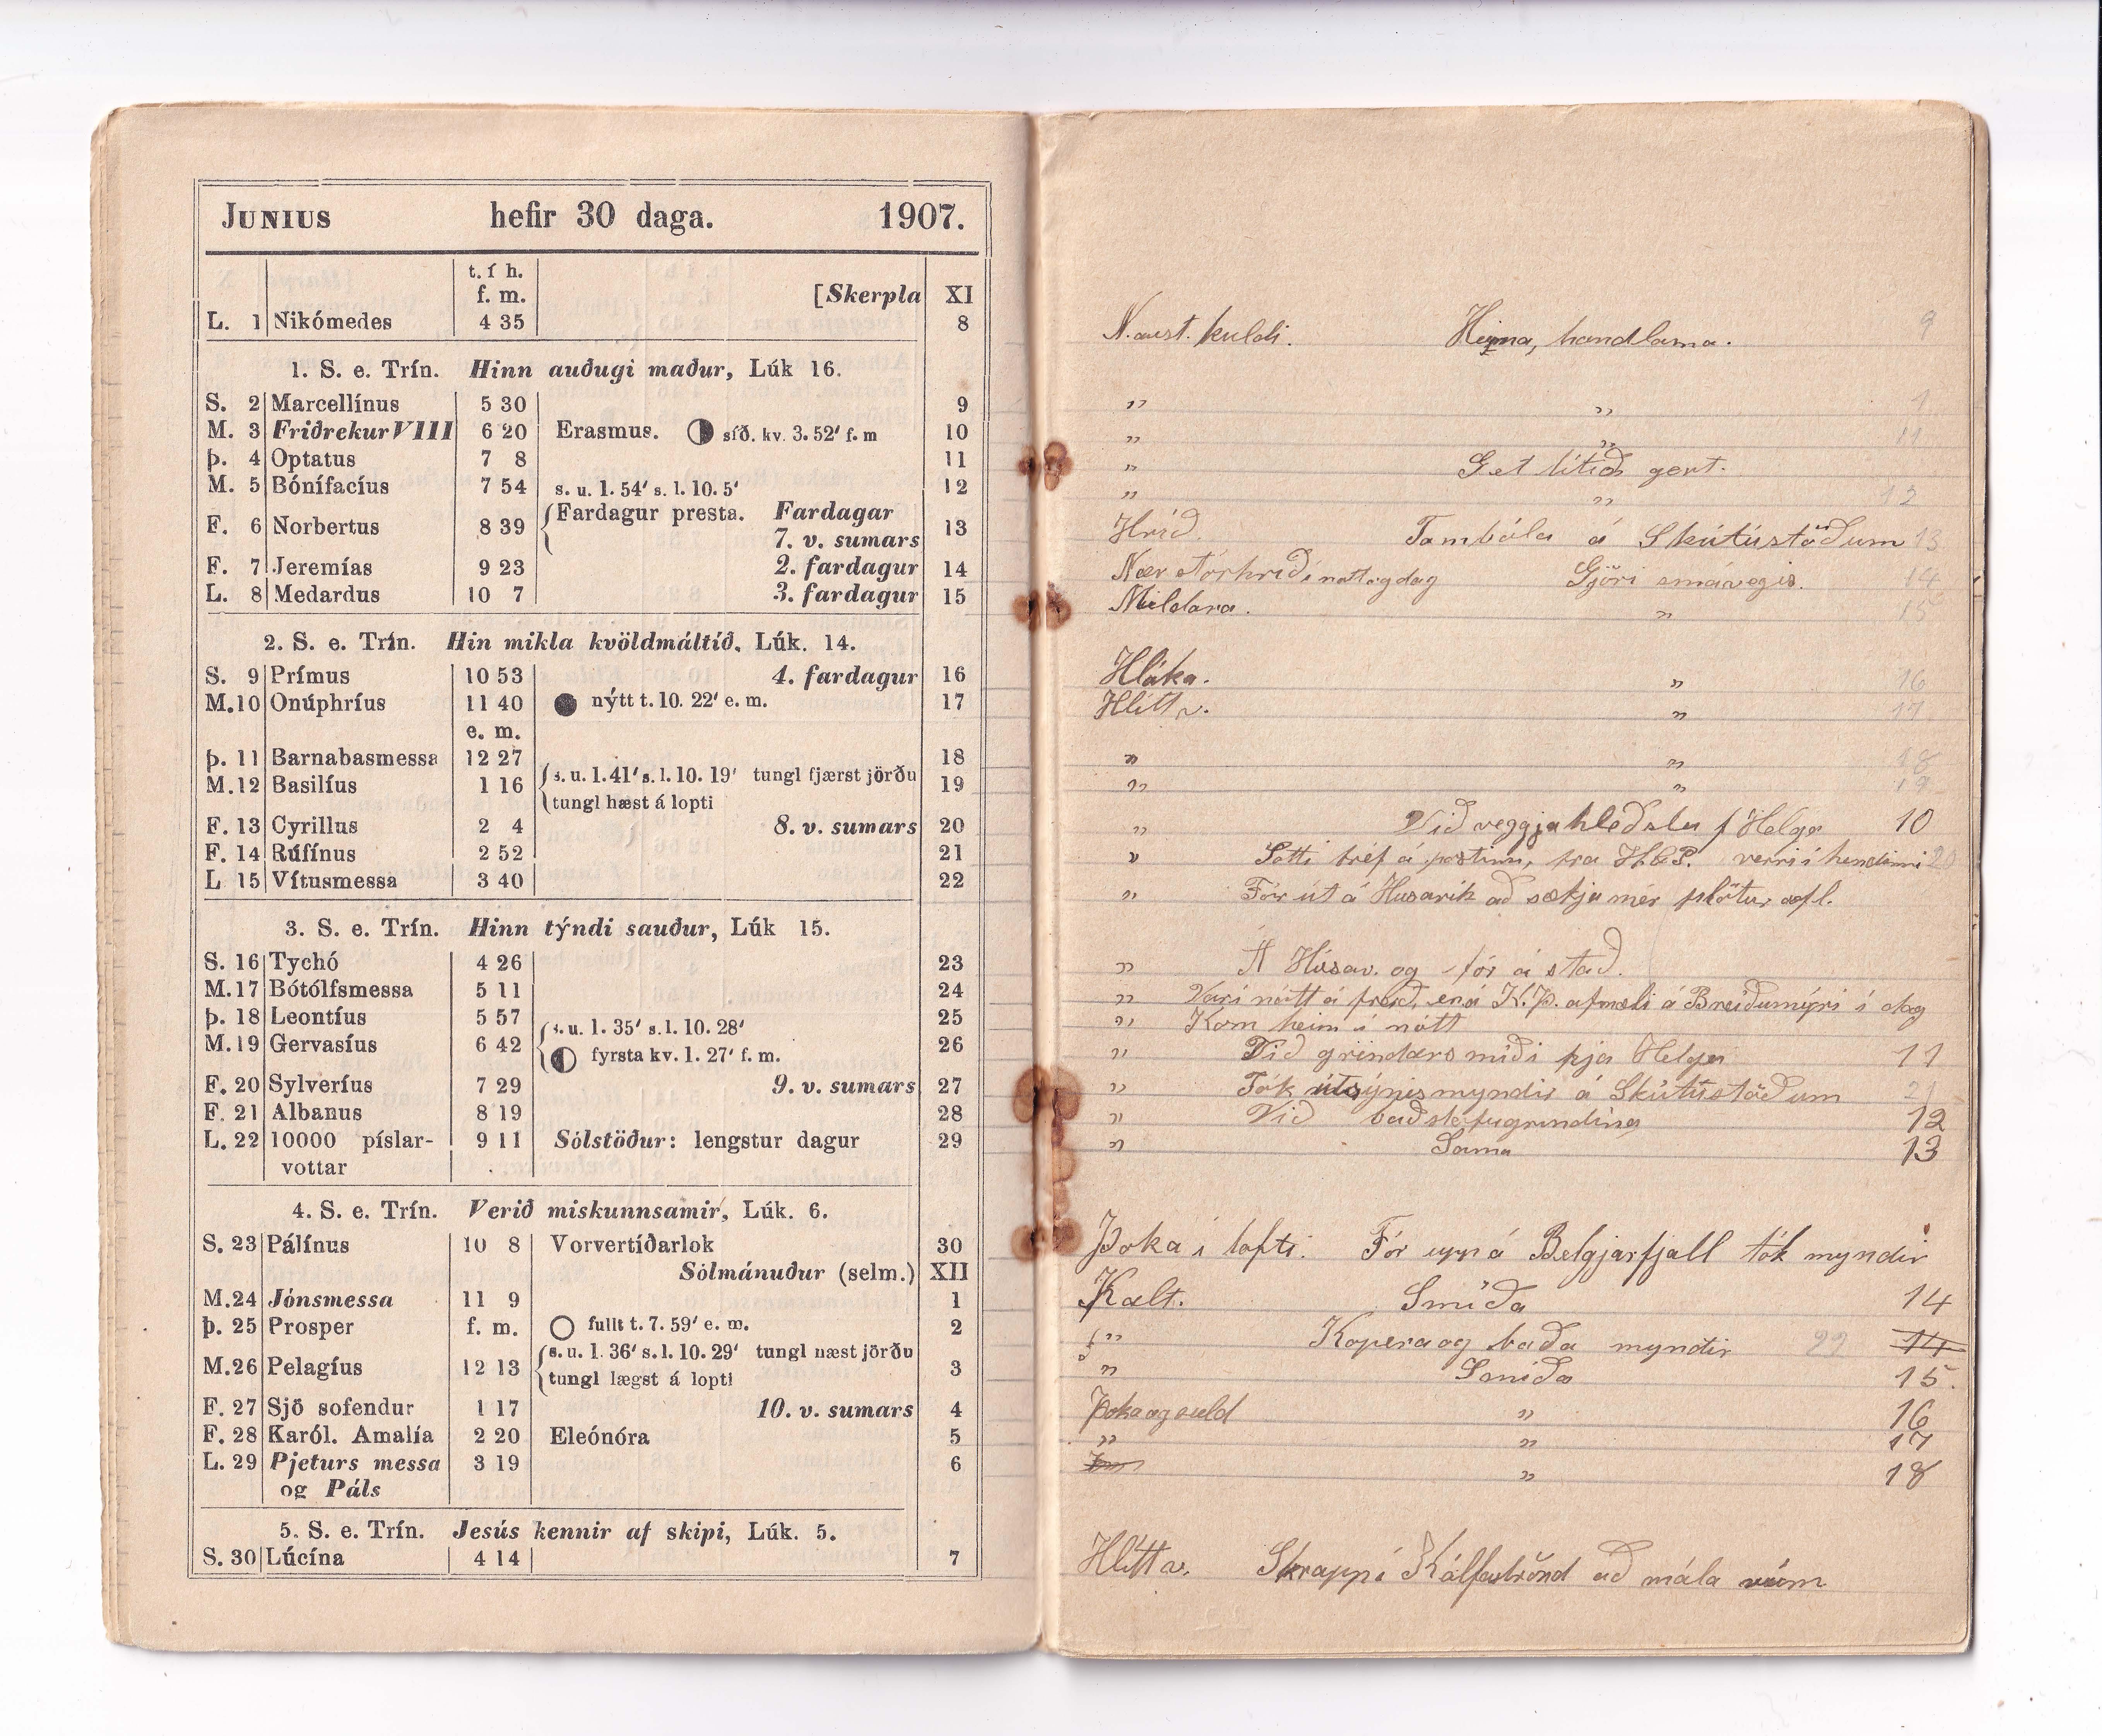 JUNIUS hefir 30 daga. 1907.
t. í h.
f. m. [Skerpla XI
L. 1 Nikómedes 4 35 8
1. S. e. Trín. Hinn auðugi maður, Lúk 16.
S. 2 Marcellínus 5 30 9
M. 3 Friðrekur VIII 6 20 Erasmus. síð. kv. 3. 52' f. m 10
Þ. 4 Optatus 7 8 11
M. 5 Bónífacíus 7 54 s. u. 1. 54' s. l. 10. 5' 12
Fardagur presta. Fardagar
F. 6 Norbertus 8 39 13
7. v. sumars
F. 7 Jeremías 9 23 2. fardagur 14
L. 8 Medardus 10 7 3. fardagur 15
2. S. e. Trín. Hin mikla kvöldmáltíð, Lúk. 14.
S. 9 Prímus 10 53 4. fardagur 16
M. 10 Onúphríus 11 40 nýtt t. 10. 22' e. m. 17
e. m.
Þ. 11 Barnabasmessa 12 27 18
s. u. 1. 41' s. l. 10. 19' tungl fjærst jörðu
M. 12 Basilíus 1 16 19
tungl hæst á lopti
F. 13 Cyrillus 2 4 8. v. sumars 20
F. 14 Rúfínus 2 52 21
L 15 Vítusmessa 3 40 22
3. S. e. Trín. Hinn týndi sauður, Lúk 15.
S. 16 Tychó 4 26 23
M. 17 Bótólfsmessa 5 11 24
Þ. 18 Leontíus 5 57 25
s. u. 1. 35' s. l. 10. 28'
M. 19 Gervasíus 6 42 26
fyrsta kv. 1. 27' f. m.
F. 20 Sylveríus 7 29 9. v. sumars 27
F. 21 Albanus 8 19 28
L. 22 10000 píslar- 9 11 Sólstöður: lengstur dagur 29
vottar
4. S. e. Trín. Verið miskunnsamir, Lúk. 6.
S. 23 Pálínus 10 8 Vorvertíðarlok 30
Sólmánuður (selm.) XII
M. 24 Jónsmessa 11 9 1
Þ. 25 Prosper f. m. fullt t. 7. 59' e. m. 2
s. u. 1. 36' s. l. 10. 29' tungl næst jörðu
M. 26 Pelagíus 12 13 3
tungl lægst á lopti
F. 27 Sjö sofendur 1 17 10. v. sumars 4
F. 28 Karól. Amalía 2 20 Eleónóra 5
L. 29 Pjeturs messa 3 19 6
og Páls
5. S. e. Trín. Jesús kennir af skipi, Lúk. 5.
S. 30 Lúcína 4 14 7
N. aust. kuldi. Heima, handlama. 9
" "
" " 11
" Get lítið gert.
" " 12
Hríð. Tombóla á Skútústöðum 13
Nær stórhríð í nótt og dag Gjöri smávegis. 14
Mildara. " 15
Hláka. " 16
Hlítt v. " 17
" " 18
" " 19
" Við veggjahleðslu f Helga 10
" Sótti bréf á póstinn, fra H&P. verri í hendinni 20
" Fór út á Husavík að sækja mér plötur ofl.
" Á Húsav. og fór á stað.
" Var í nótt á ferð, en á K.Þ. afmæli á Breiðumýri í dag
" Kom heim í nótt
" Við grindarsmíði hja Helga 11
" Tók útsýnismyndir á Skútústöðum 21
" Við baðstofugrindina 12
" Sama 13
Þoka í lofti. Fór upp á Belgjarfjall tók myndir
Kalt. Smíða 14
" Kopera og baða myndir 22 14
" Smíða 15.
Þoka og suld " 16
" " 17
" 18
Hlítt v. Skrapp í Kálfaströnd að mála rúm